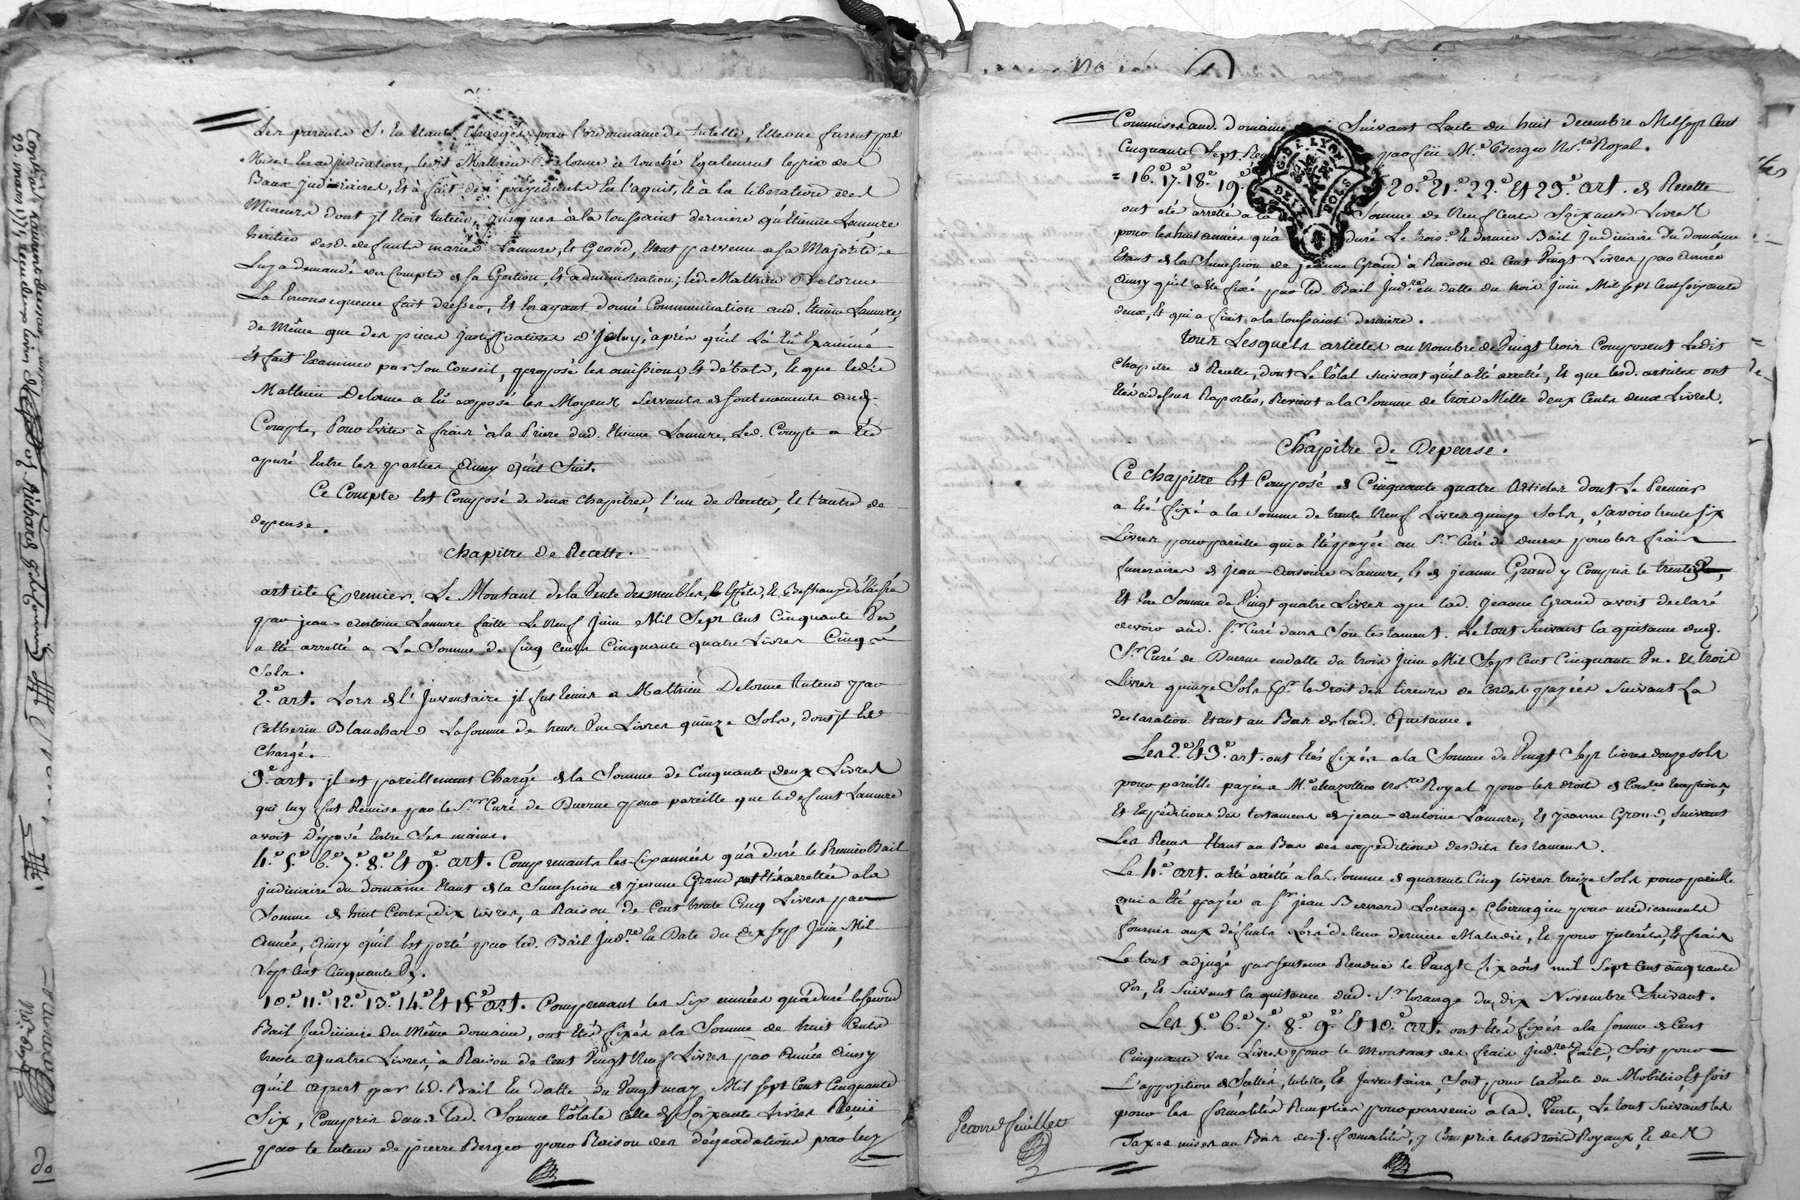 Les parents s'en étant chargés par l'ordonnance de tutelle, Elle ne furent pas
Mises en adjudication, led. Mathieu Delorme a touché également le prix des
Baux Judiciaires, Et a fait des payements en l'aquit, Et à la liberation des
Mineurs dont il étoit tuteur, jusques à la toussaint derniere qu'Etienne Lamure
heritier desd. defunts mariés Lamure, Et Grand, étant parvenu a sa Majorité
Luy a demandé un Compte de sa Gestion, Et administration; led. Mathieu Delorme
La En consequence fait dresser, Et En ayant donné Communication aud. Etienne Lamure,
de Même que des pieces justifficatives d'Jceluy, après qu'il l'a Eû Examiné
Et fait Examiner par Son Conseil, proposé les omissions, Et débats, Et que ledit
Mathieu Delorme a Eû exposé les Moyens servants de soutenements aud.
Compte, Pour Eviter à frais à la Priere dud. Etienne Lamure, Led. Compte a Eté
apuré Entre les parties Ainsy qu'il Suit.
Ce Compte Est Composé de deux chapitres, l'un de Recette, Et l'autre de
depense.
Chapitre de Recette.
article Premier. Le Montant de la Vente des meubles, Effets, Et Bestiaux délaissés
par jean-Antoine Lamure faitte Le Neuf Juin Mil Sept Cent Cinquante Un
a été arretté a La Somme de Cinq Cents Cinquante quatre Livres Cinq
Sols.
2.e art. Lors de l'Jnventaire jl fut remis a Mathieu Delorme tuteur par
Catherin Blanchard La somme de trente Une Livres quinze Sols, dont jl Est
Chargé.
3.e art. jl est pareillement Chargé de la Somme de Cinquante deux Livres
qui luy fut Remise par le S.r Curé de Duerne pour pareille que le defunt Lamure
avoit Déposé Entre Ses mains.
4.e 5.e 6.e 7.e 8.e Et 9.e art. Comprenants les Six années qu'a duré le Premier Bail
judiciaire du domaine étant de la Succession de jeanne Grand ont Eté arrettés a la
Somme de huit Cents Dix livres, a Raison de Cent trente Cinq Livres par
Année, Ainsy qu'il Est porté par led. Bail Jud.re En Date du Dix sept Juin Mil
Sept Cent Cinquante Un.
10.e 11.e 12.e 13.e 14.e Et 15.e art. Comprenant les Six années qu'a duré le second
Bail Judiciaire du Même domaine, ont Eté fixés a la Somme de huit Cents
trente quatre Livres, a Raison de Cent Vingt Neuf Livres par Année Ainsy
qu'il apert par led. Bail En datte du Vingt may Mil Sept Cent Cinquante
Six, Compris dans lad. Somme totale celle de Soixante Livres Remise
par le tuteur de pierre Berger pour Raison des dégradations par luy
Commises aud. domaine Suivant L'acte du huit decembre Mil Sept Cent
Cinquante Sept Reçu par feu M.e Berger No.re Royal.
16.e 17.e 18.e 19.e 20.e 21.e 22.e Et 23.e art. de Recette
ont été arretté a la Somme de Neuf Cents Soixante Livres
pour les huit années qu'a duré Le trois.e Et dernier Bail Judiciaire du domaine
Etant de la Succession de jeanne Grand à Raison de Cent Vingt Livres par Année
Ainsy qu'il a été fixé par led. Bail Jud.re en datte du trois Juin Mil sept cent soixante
deux, Et qui a finit a la toussaint derniere.
tous Lesquels articles au nombre de Vingt trois Composent Ledit
Chapitre de Recette, dont Le total suivant qu'il a été arretté, Et que lesd. articles ont
Etés cidessus Raportés, Revient a la Somme de trois Mille deux Cents deux Livres.
Chapitre de Depense.
Ce Chapitre Est Composé de Cinquante quatre Articles dont Le Premier
a Eté fixé a la Somme de trente Neuf Livres quinze Sols, Savoir trente six
Livres pour pareille qui a Eté payée au S.r Curé de duerne pour les frais
funeraires de jean-Antoine Lamure, Et de jeanne Grand y Compris le trentain,
Et Une Somme de Vingt quatre Livres que lad. Jeanne Grand avoit declaré
devoir aud. S.r Curé dans Son testament. Le tout Suivant la quitance dud.
S.r Curé de Duerne en datte du trois Juin Mil Sept Cent Cinquante Un. Et trois
Livres quinze Sols p.r le droit des tireurs de Cordes payées suivant La
declaration Etant au Bas de lad. Quitance.
Les 2.e Et 3.e art. ont Etés fixés a la Somme de Vingt Sept livres douze sols
pour pareille payée a M.e chazottier No.re Royal pour les droit de Con.le receptions,
Et Expéditions des testament de jean-Antoine Lamure, Et jeanne Grand, suivant
Les Reçus Etant au Bas des expeditions desdits testaments.
Le 4.e art. a été arrété a la Somme de quarente Cinq livres treize Sols pour pareille
qui a Eté payée a S.r jean Bernard Lorange Chirurgien pour médicaments
fournis aux défunts Lors de leur derniere Maladie, Et pour Jnterêts, Et frais
Le tout adjugé par Sentence Rendue le Vingt Six aôut mil Sept Cent Cinquante
Un, Et Suivant la quitance dud. S.r lorange du dix Novembre Suivant.
Les 5.e 6.e 7.e 8.e 9.e Et 10.e art. ont Etés fixés a la Somme de Cent
Cinquante une Livres pour le Montant des frais Jud.res fait, Soit pour
L'apposition de Scellés, tutelle, Et Jnventaire, Soit pour la Vente du Mobilier, Et soit
pour les formalités Remplies pour parvenir à lad. Vente, Le tout suivant les
Taxes mises au Bas desd. formalités, y Compris les droits Royaux, Et des
G. DE LYON